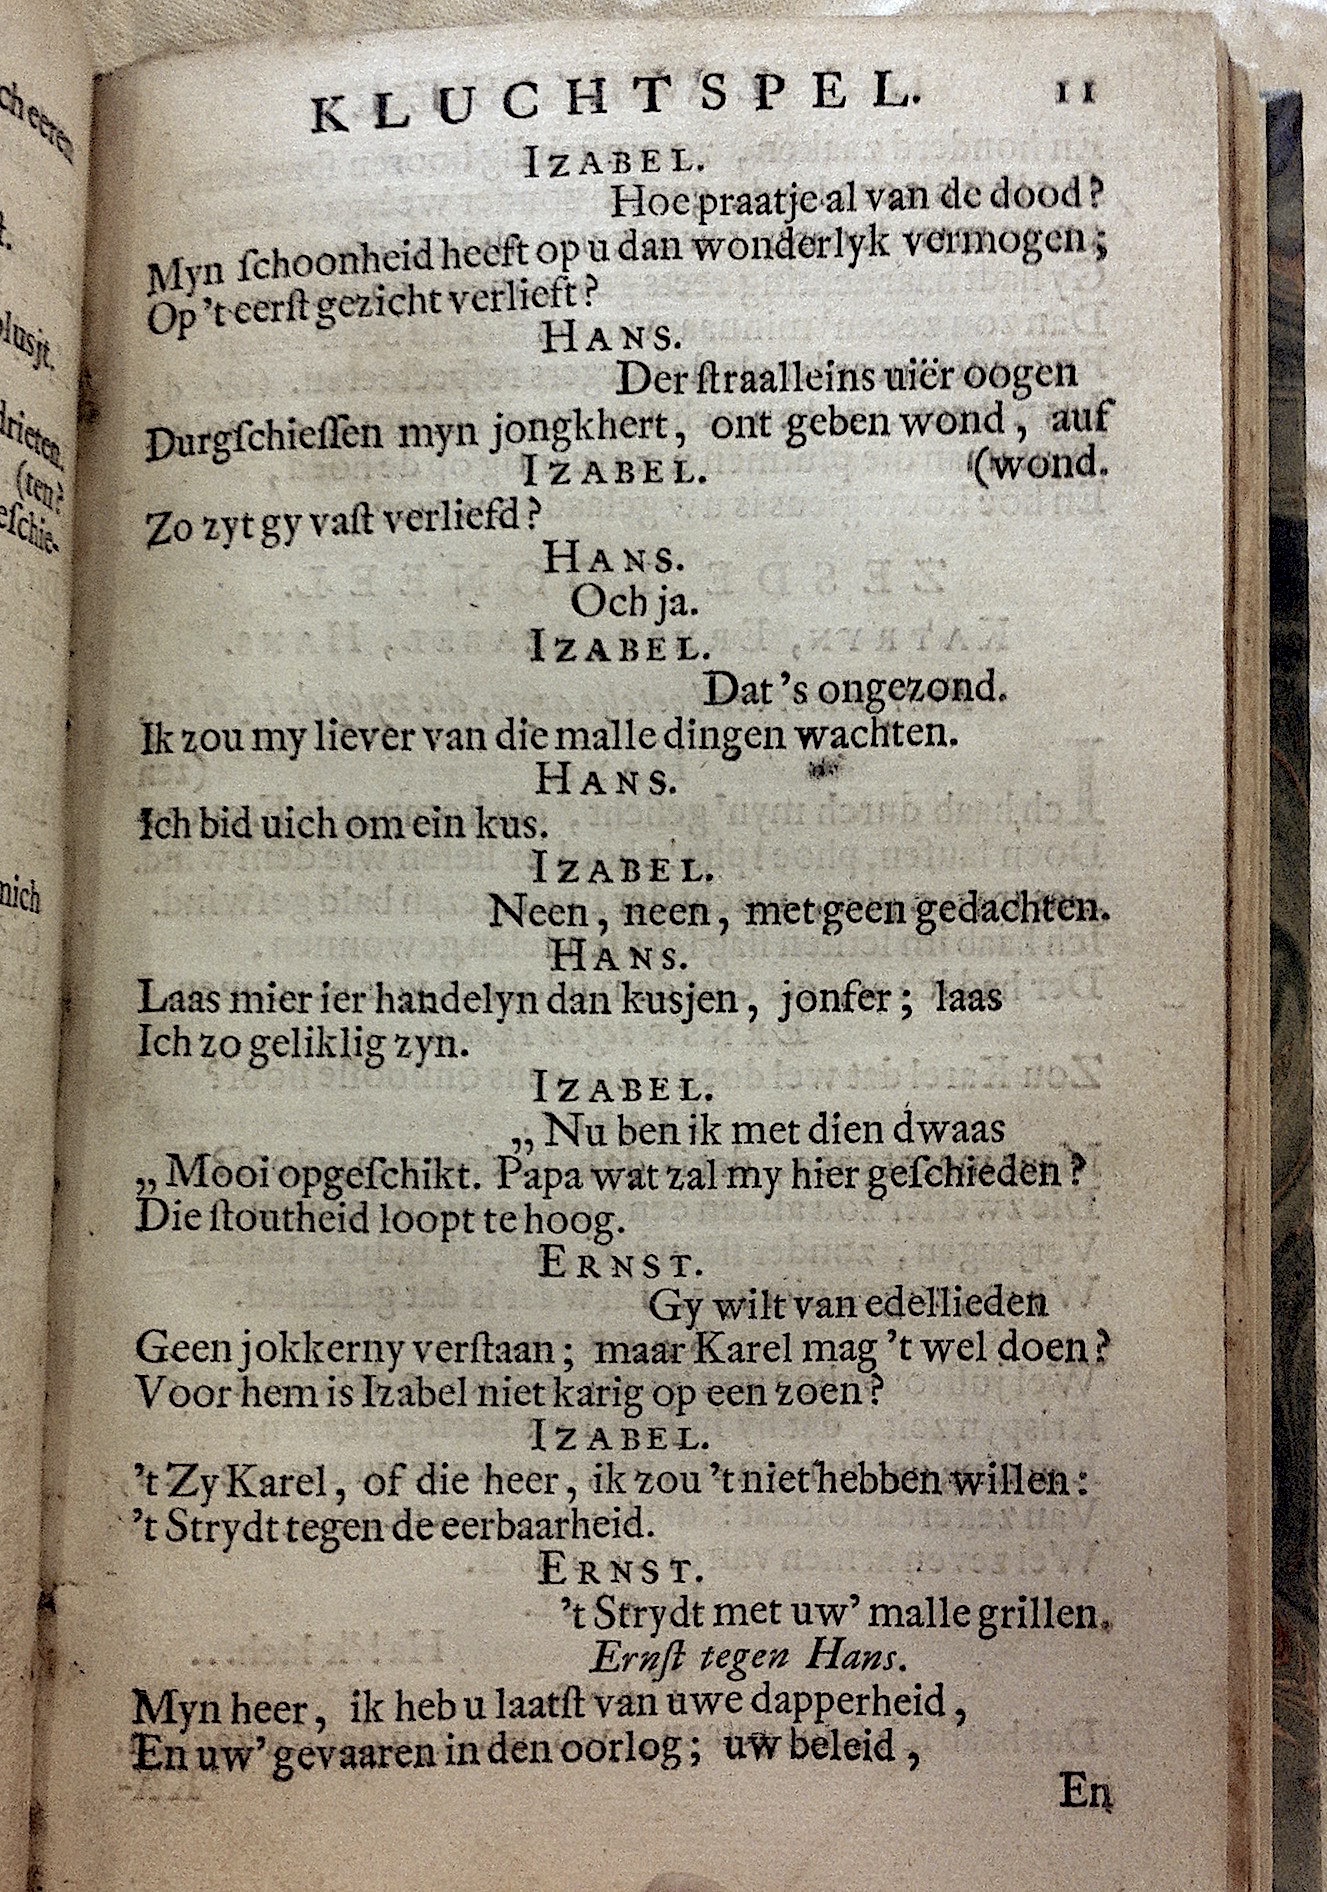 KLUCHTSPEL. 11
IZABEL.
Hoe praatje al van de dood?
Myn ſchoonheid heeft op u dan wonderlyk vermogen;
Op 't eerſt gezicht verlieft?
HANS.
Der ſtraalleins uiër oogen
Durgſchieſſen myn jongkhert, ont geben wond, auf
(wond.
IZABEL.
Zo zyt gy vaſt verliefd?
HANS.
Och ja.
IZABEL.
Dat 's ongezond.
Ik zou my liever van die malle dingen wachten.
HANS.
Ich bid uich om ein kus.
IZABEL.
Neen, neen, met geen gedachten.
HANS.
Laas mier ier handelyn dan kusjen, jonfer; laas
Ich zo geliklig zyn.
IZABEL.
„Nu ben ik met dien dwaas
„Mooi opgeſchikt. Papa wat zal my hier geſchieden?
Die ſtoutheid loopt te hoog.
ERNST.
Gy wilt van edellieden
Geen jokkerny verſtaan; maar Karel mag 't wel doen?
Voor hem is Izabel niet karig op een zoen?
IZABEL.
't Zy Karel, of die heer, ik zou 't niet hebben willen:
't Strydt tegen de eerbaarheid.
ERNST.
't Strydt met uw' malle grillen.
Ernſt tegen Hans.
Myn heer, ik heb u laatſt van uwe dapperheid,
En uw' gevaaren in den oorlog; uw beleid,
En